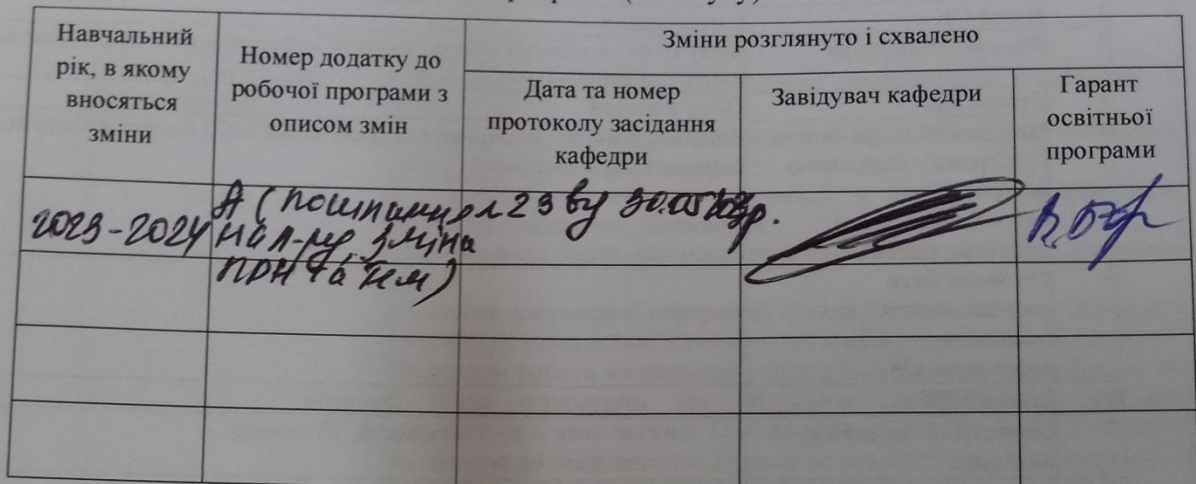 Навчальний рік, в якому вносяться зміни
Номер додатку до робочої програми з описом змін
Зміни розглянуто і схвалено
Дата та номер протоколу засідання кафедри
Завідувач кафедри
Гарант освітньої програми
2023-2024
А (
зміна
ПРН та тем)
23 від 30.05